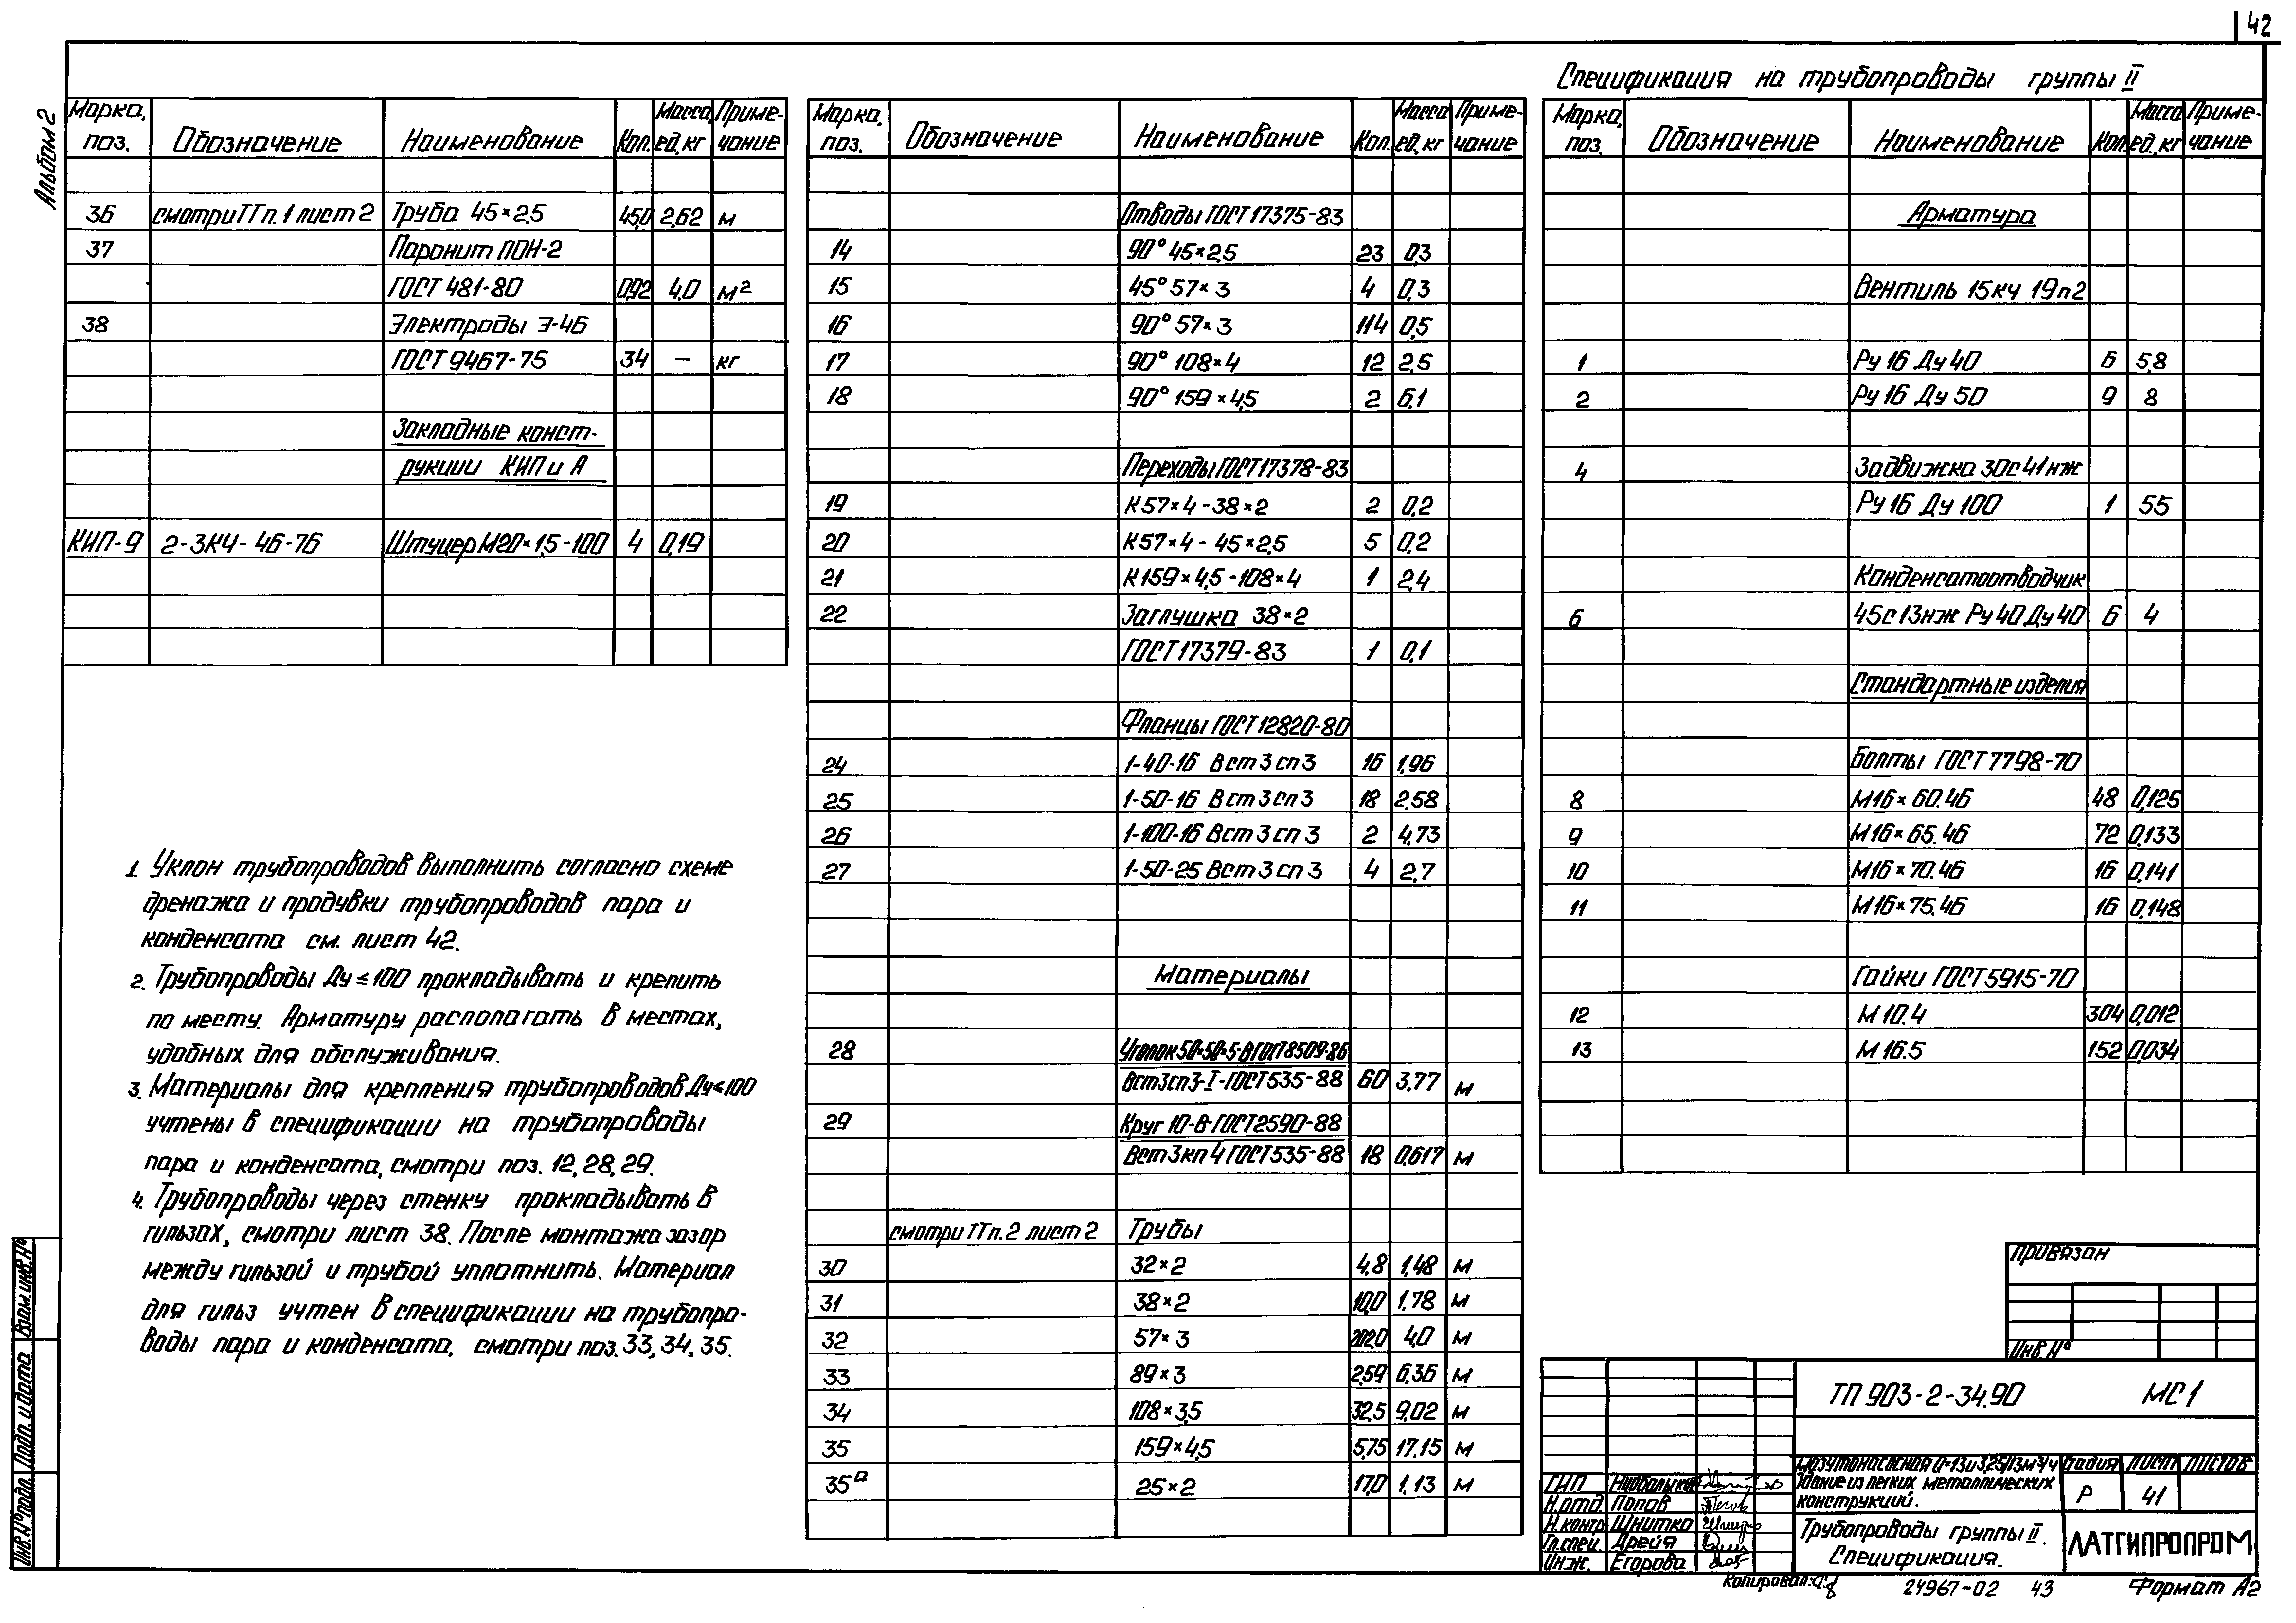 42
Альбом 2
Спецификация на трубопроводы группы II
Марка, поз. Обозначение Наименование Кол. Масса ед, кг Примечание
36 смотри ТТ п. 1 лист 2 Труба 45×2,5 45,0 2,62 м
37 Паронит ПОН-2
ГОСТ 481-80 0,92 4,0 м²
38 Электроды Э-46
ГОСТ 9467-75 34 — кг
Закладные конст-
рукции КИП и А
КИП-9 2-ЗК4-46-76 Штуцер М20×1,5-100 4 0,19
1. Уклон трубопроводов выполнить согласно схеме
дренажа и продувки трубопроводов пара и
конденсата см. лист 42.
2. Трубопроводы Ду≤100 прокладывать и крепить
по месту. Арматуру располагать в местах,
удобных для обслуживания.
3. Материалы для крепления трубопроводов Ду≤100
учтены в спецификации на трубопроводы
пара и конденсата, смотри поз. 12, 28, 29.
4. Трубопроводы через стенку прокладывать в
гильзах, смотри лист 38. После монтажа зазор
между гильзой и трубой уплотнить. Материал
для гильз учтен в спецификации на трубопро-
воды пара и конденсата, смотри поз. 33, 34, 35.
Марка, поз. Обозначение Наименование Кол. Масса ед, кг Примечание
Отводы ГОСТ 17375-83
14 90° 45×2,5 23 0,3
15 45° 57×3 4 0,3
16 90° 57×3 114 0,5
17 90° 108×4 12 2,5
18 90° 159×4,5 2 6,1
Переходы ГОСТ 17378-83
19 К 57×4-38×2 2 0,2
20 К 57×4-45×2,5 5 0,2
21 К 159×4,5-108×4 1 2,4
22 Заглушка 38×2
ГОСТ 17379-83 1 0,1
Фланцы ГОСТ 12820-80
24 1-40-16 Вст3сп3 16 1,96
25 1-50-16 Вст3сп3 18 2,58
26 1-100-16 Вст3сп3 2 4,73
27 1-50-25 Вст3сп3 4 2,7
Материалы
28 Уголок 50×50×5-В ГОСТ 8509-86
Вст3сп3-I-ГОСТ 535-88 60 3,77 м
29 Круг 10-В-ГОСТ 2590-88
Вст3кп4 ГОСТ 535-88 18 0,617 м
смотри ТТ п. 2 лист 2 Трубы
30 32×2 4,8 1,48 м
31 38×2 10,0 1,78 м
32 57×3 202,0 4,0 м
33 89×3 2,59 6,36 м
34 108×3,5 32,5 9,02 м
35 159×4,5 5,75 17,15 м
35а 25×2 17,0 1,13 м
Марка, поз. Обозначение Наименование Кол. Масса ед, кг Примечание
Арматура
Вентиль 15кч 19п2
1 Ру 16 Ду 40 6 5,8
2 Ру 16 Ду 50 9 8
4 Задвижка 30с41нж
Ру 16 Ду 100 1 55
Конденсатоотводчик
6 45с13нж Ру 40 Ду 40 6 4
Стандартные изделия
Болты ГОСТ 7798-70
8 М16×60.46 48 0,125
9 М16×65.46 72 0,133
10 М16×70.46 16 0,141
11 М16×75.46 16 0,148
Гайки ГОСТ 5915-70
12 М 10.4 304 0,012
13 М 16.5 152 0,034
Привязан
Инв.№
ТП 903-2-34.90 МС1
Мазутонасосная Q=13 и 3,25/13 м³/ч
Здание из легких металлических
конструкций.
Стадия Лист Листов
Р 41
Трубопроводы группы II.
Спецификация.
ЛАТГИПРОПРОМ
ГИП
Н.отд. Попов
Н.контр Шнитко
Гл.спец. Дрейя
Инж. Егорова
Копировал:
24967-02 43
Формат А2
Взам.инв.№
Подп. и дата
Инв.№подл.